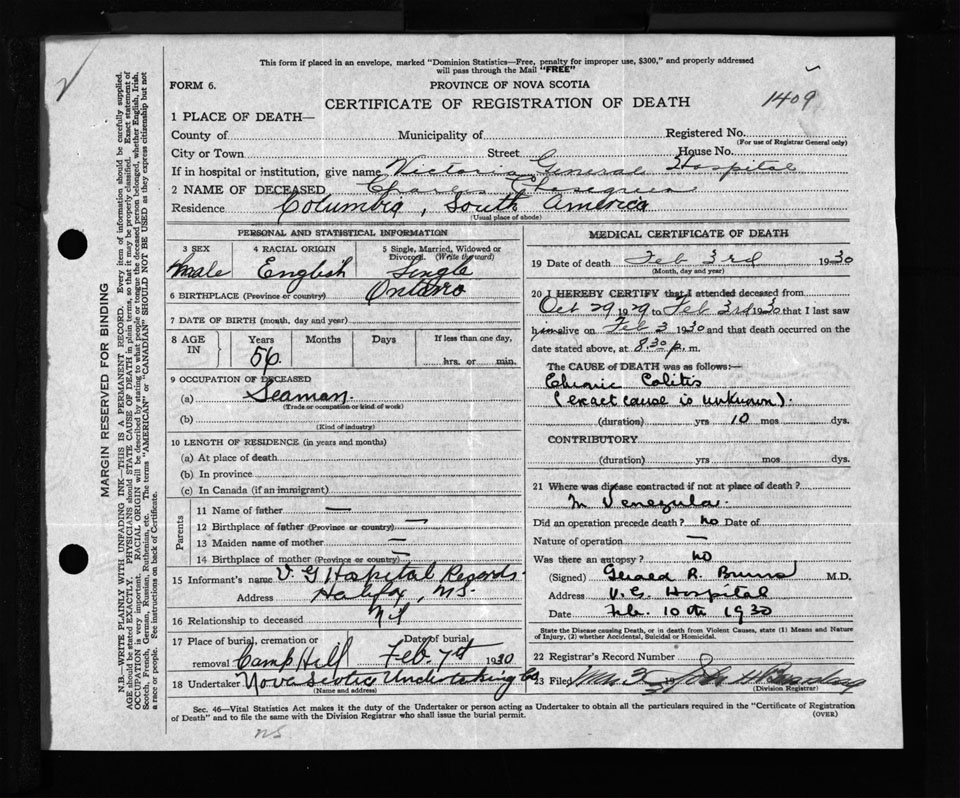 This form if placed in an envelope, marked "Dominion Statistics—Free, penalty for improper use, $300," and properly addressed
will pass through the Mail "FREE"
FORM 6.
PROVINCE OF NOVA SCOTIA
CERTIFICATE OF REGISTRATION OF DEATH
1409
1 PLACE OF DEATH—
County of Municipality of Registered No.
(For use of Registrar General only)
City or Town Street House No.
If in hospital or institution, give name Victoria General Hospital
2 NAME OF DECEASED Charles
Residence Columbia, South America
(Usual place of abode)
PERSONAL AND STATISTICAL INFORMATION
3 SEX 4 RACIAL ORIGIN 5 Single, Married, Widowed or
Divorced. (Write the word)
male English Single
6 BIRTHPLACE (Province or country) Ontario
7 DATE OF BIRTH (month, day and year)
8 AGE IN Years Months Days If less than one day,
56 hrs. or min.
9 OCCUPATION OF DECEASED
(a) Seaman.
(Trade or occupation or kind of work)
(b)
(Kind of industry)
10 LENGTH OF RESIDENCE (in years and months)
(a) At place of death
(b) In province
(c) In Canada (if an immigrant)
Parents
11 Name of father —
12 Birthplace of father (Province or country) —
13 Maiden name of mother —
14 Birthplace of mother (Province or country) —
15 Informant's name V. G Hospital Records.
Address Halifax, N.S.
16 Relationship to deceased Nil
17 Place of burial, cremation or Date of burial
removal Camp Hill Feb. 7th 1930
18 Undertaker Nova Scotia Undertaking Co
(Name and address)
MEDICAL CERTIFICATE OF DEATH
19 Date of death Feb 3rd 1930
(Month, day and year)
20 I HEREBY CERTIFY that I attended deceased from
Oct 29 1929 to Feb 3rd 1930 that I last saw
him alive on Feb 3 1930 and that death occurred on
date stated above, at 8.30 p. m.
The CAUSE of DEATH was as follows:—
Chronic Colitis
(exact cause is unknown).
(duration) yrs 10 mos dys.
CONTRIBUTORY
(duration) yrs mos dys.
21 Where was disease contracted if not at place of death?
In Venezula.
Did an operation precede death? no Date of
Nature of operation —
Was there an autopsy? no
(Signed) Gerald R. Burns M.D.
Address V.G. Hospital
Date Feb. 10th 1930
State the Disease causing Death, or in death from Violent Causes, state (1) Means and Nature
of Injury, (2) whether Accidental, Suicidal or Homicidal.
22 Registrar's Record Number
23 Filed
(Division Registrar)
Sec. 46—Vital Statistics Act makes it the duty of the Undertaker or person acting as Undertaker to obtain all the particulars required in the "Certificate of Registration
of Death" and to file the same with the Division Registrar who shall issue the burial permit.
(OVER)
NS
MARGIN RESERVED FOR BINDING
N.B.—WRITE PLAINLY WITH UNFADING INK—THIS IS A PERMANENT RECORD. Every item of information should be carefully supplied.
AGE should be stated EXACTLY. PHYSICIANS should STATE CAUSE OF DEATH in plain terms, so that it may be properly classified. Exact statement of
OCCUPATION is very important. RACIAL ORIGIN will be described by stating to what people or tongue the deceased person belonged, whether English, Irish,
Scotch, French, German, Russian, Ruthenian, etc. The terms "AMERICAN" or "CANADIAN" SHOULD NOT BE USED as they express citizenship but not
a race or people. See instructions on back of Certificate.